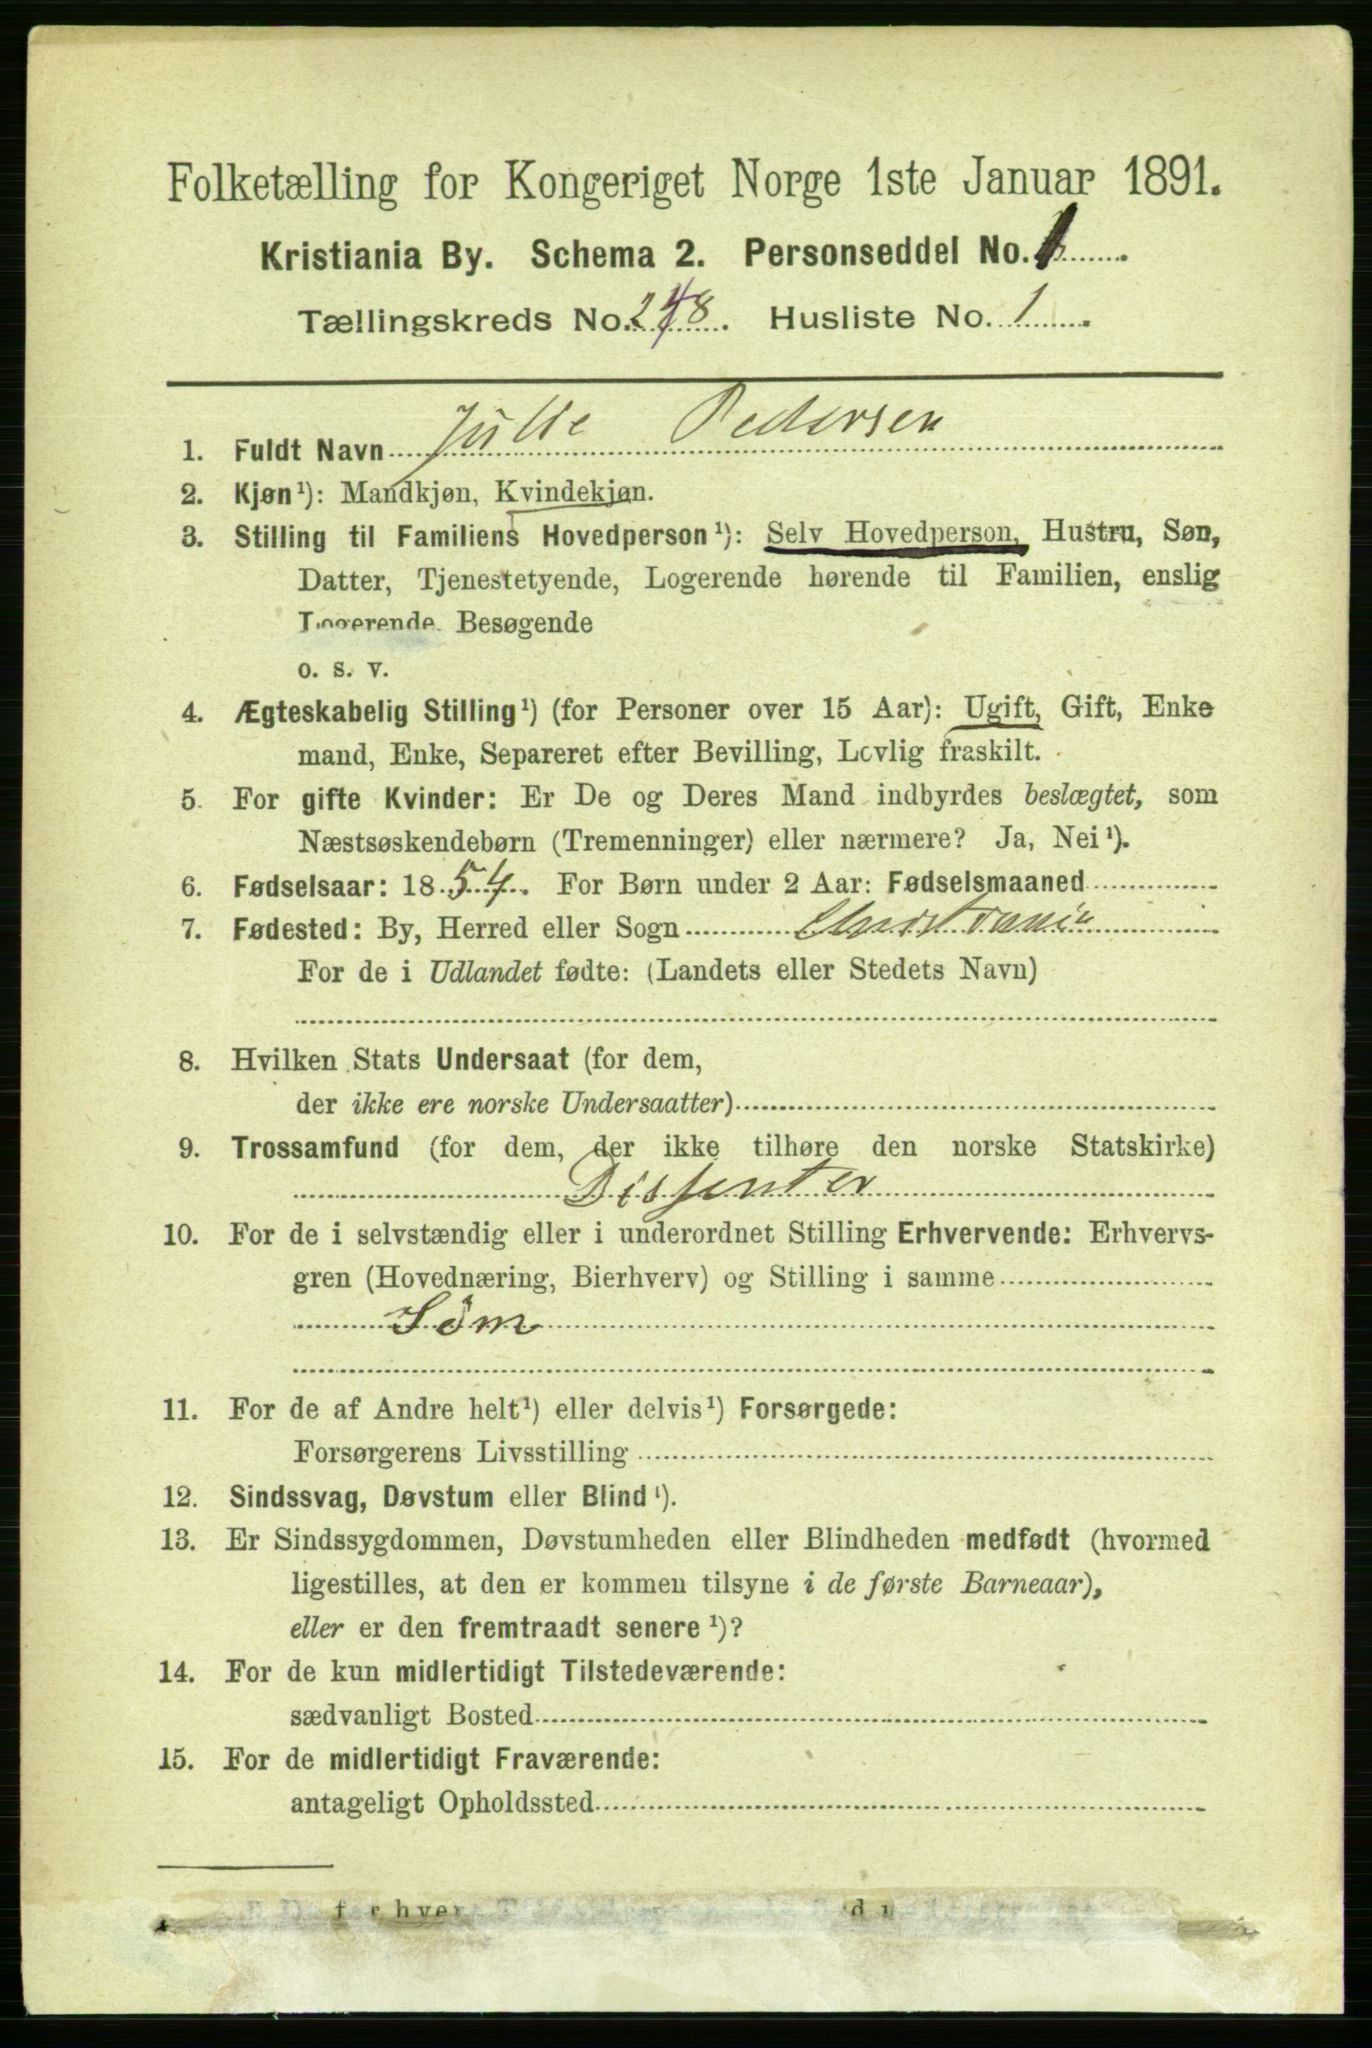 Folketælling for Kongeriget Norge 1ste Januar 1891.
Kristiania By. Schema 2. Personseddel No. 1
Tællingskreds No. 248. Husliste No. 1.
1. Fuldt Navn Julie Pedersen
2. Kjøn¹): Mandkjøn, Kvindekjøn.
3. Stilling til Familiens Hovedperson¹): Selv Hovedperson, Hustru, Søn,
Datter, Tjenestetyende, Logerende hørende til Familien, enslig
Logerende, Besøgende
o. s. v.
4. Ægteskabelig Stilling¹) (for Personer over 15 Aar): Ugift, Gift, Enke
mand, Enke, Separeret efter Bevilling, Lovlig fraskilt.
5. For gifte Kvinder: Er De og Deres Mand indbyrdes beslægtet, som
Næstsøskendebørn (Tremenninger) eller nærmere? Ja, Nei¹).
6. Fødselsaar: 1854. For Børn under 2 Aar: Fødselsmaaned
7. Fødested: By, Herred eller Sogn Christiania
For de i Udlandet fødte: (Landets eller Stedets Navn)
8. Hvilken Stats Undersaat (for dem,
der ikke ere norske Undersaatter)
9. Trossamfund (for dem, der ikke tilhøre den norske Statskirke)
Dissenter
10. For de i selvstændig eller i underordnet Stilling Erhvervende: Erhvervs-
gren (Hovednæring, Bierhverv) og Stilling i samme
Søm
11. For de af Andre helt¹) eller delvis¹) Forsørgede:
Forsørgerens Livsstilling
12. Sindssvag, Døvstum eller Blind¹).
13. Er Sindssygdommen, Døvstumheden eller Blindheden medfødt (hvormed
ligestilles, at den er kommen tilsyne i de første Barneaar),
eller er den fremtraadt senere¹)?
14. For de kun midlertidigt Tilstedeværende:
sædvanligt Bosted
15. For de midlertidigt Fraværende:
antageligt Opholdssted